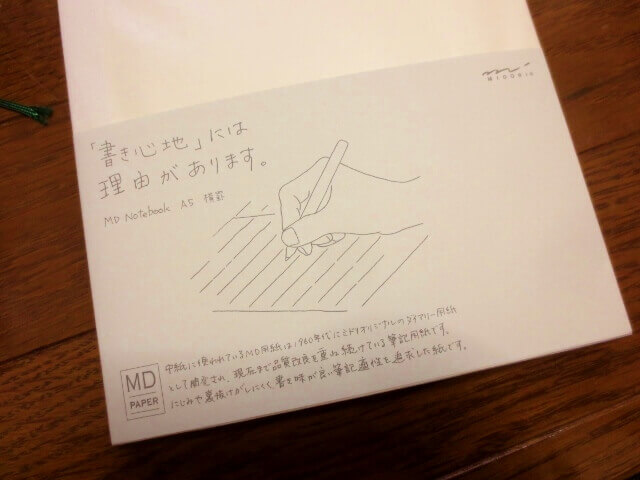 MIDORI
「書き心地」には
理由があります。
MD Notebook A5 横罫
MD
PAPER
中紙に使われているMD用紙は1960年代にミドリオリジナルのダイアリー用紙
として開発され、現在まで品質改良を重ね続けている筆記用紙です。
にじみや裏抜けがしにくく、書き味が良い筆記適性を追求した紙です。